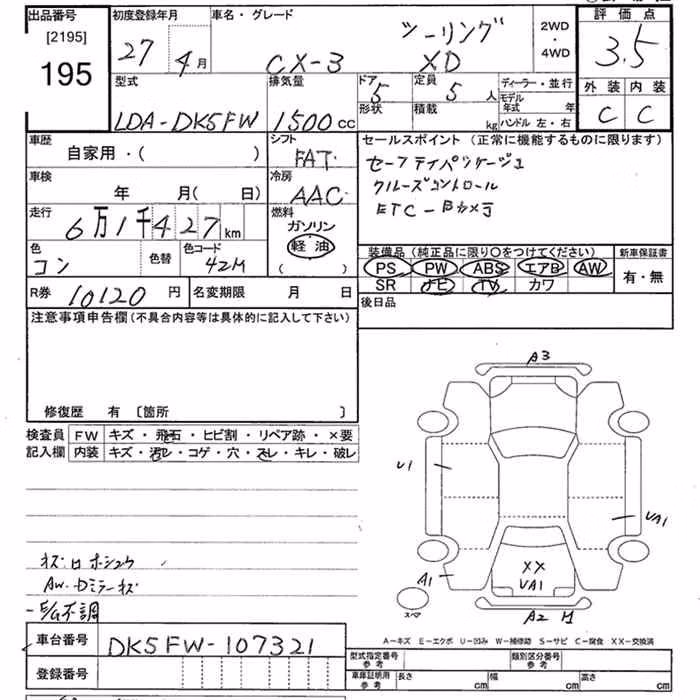 出品番号
[2195]
195
初度登録年月
27 4月
車名・グレード
ツーリング
CX-3 XD
2WD
・
4WD
評価点
3.5
外装 内装
C C
型式
LDA-DK5FW
排気量
1500cc
ドア
5
形状
定員
5人
積載
kg
ディーラー・並行
モデル年式 年
ハンドル 左・右
車歴
自家用・( )
シフト
FAT
車検
年 月( 日)
冷房
AAC
走行
6万1千427km
燃料
ガソリン
軽油
( )
色
コン
色替
色コード
42M
R券
10120円
名変期限 月 日
セールスポイント (正常に機能するものに限ります)
セーフティパッケージ
クルーズコントロール
ETC-Bカメラ
装備品(純正品に限り○をつけてください)
PS PW ABS エアB AW
SR ナビ TV カワ
新車保証書
有・無
後日品
注意事項申告欄(不具合内容等は具体的に記入して下さい)
修復歴 有 〔箇所 〕
検査員記入欄
FW キズ・飛石・ヒビ割・リペア跡・×要
内装 キズ・汚レ・コゲ・穴・スレ・キレ・破レ
A3
U1
VA1
XX
VA1
A1
A2 M
スペア
AW-Dミラーキズ
-E/G不調
A-キズ E-エクボ U-凹み W-補修跡 S-サビ C-腐食 XX-交換済
車台番号
DK5FW-107321
登録番号
型式指定番号
参考
類別区分番号
参考
車庫証明用
参考
長さ cm
幅 cm
高さ cm